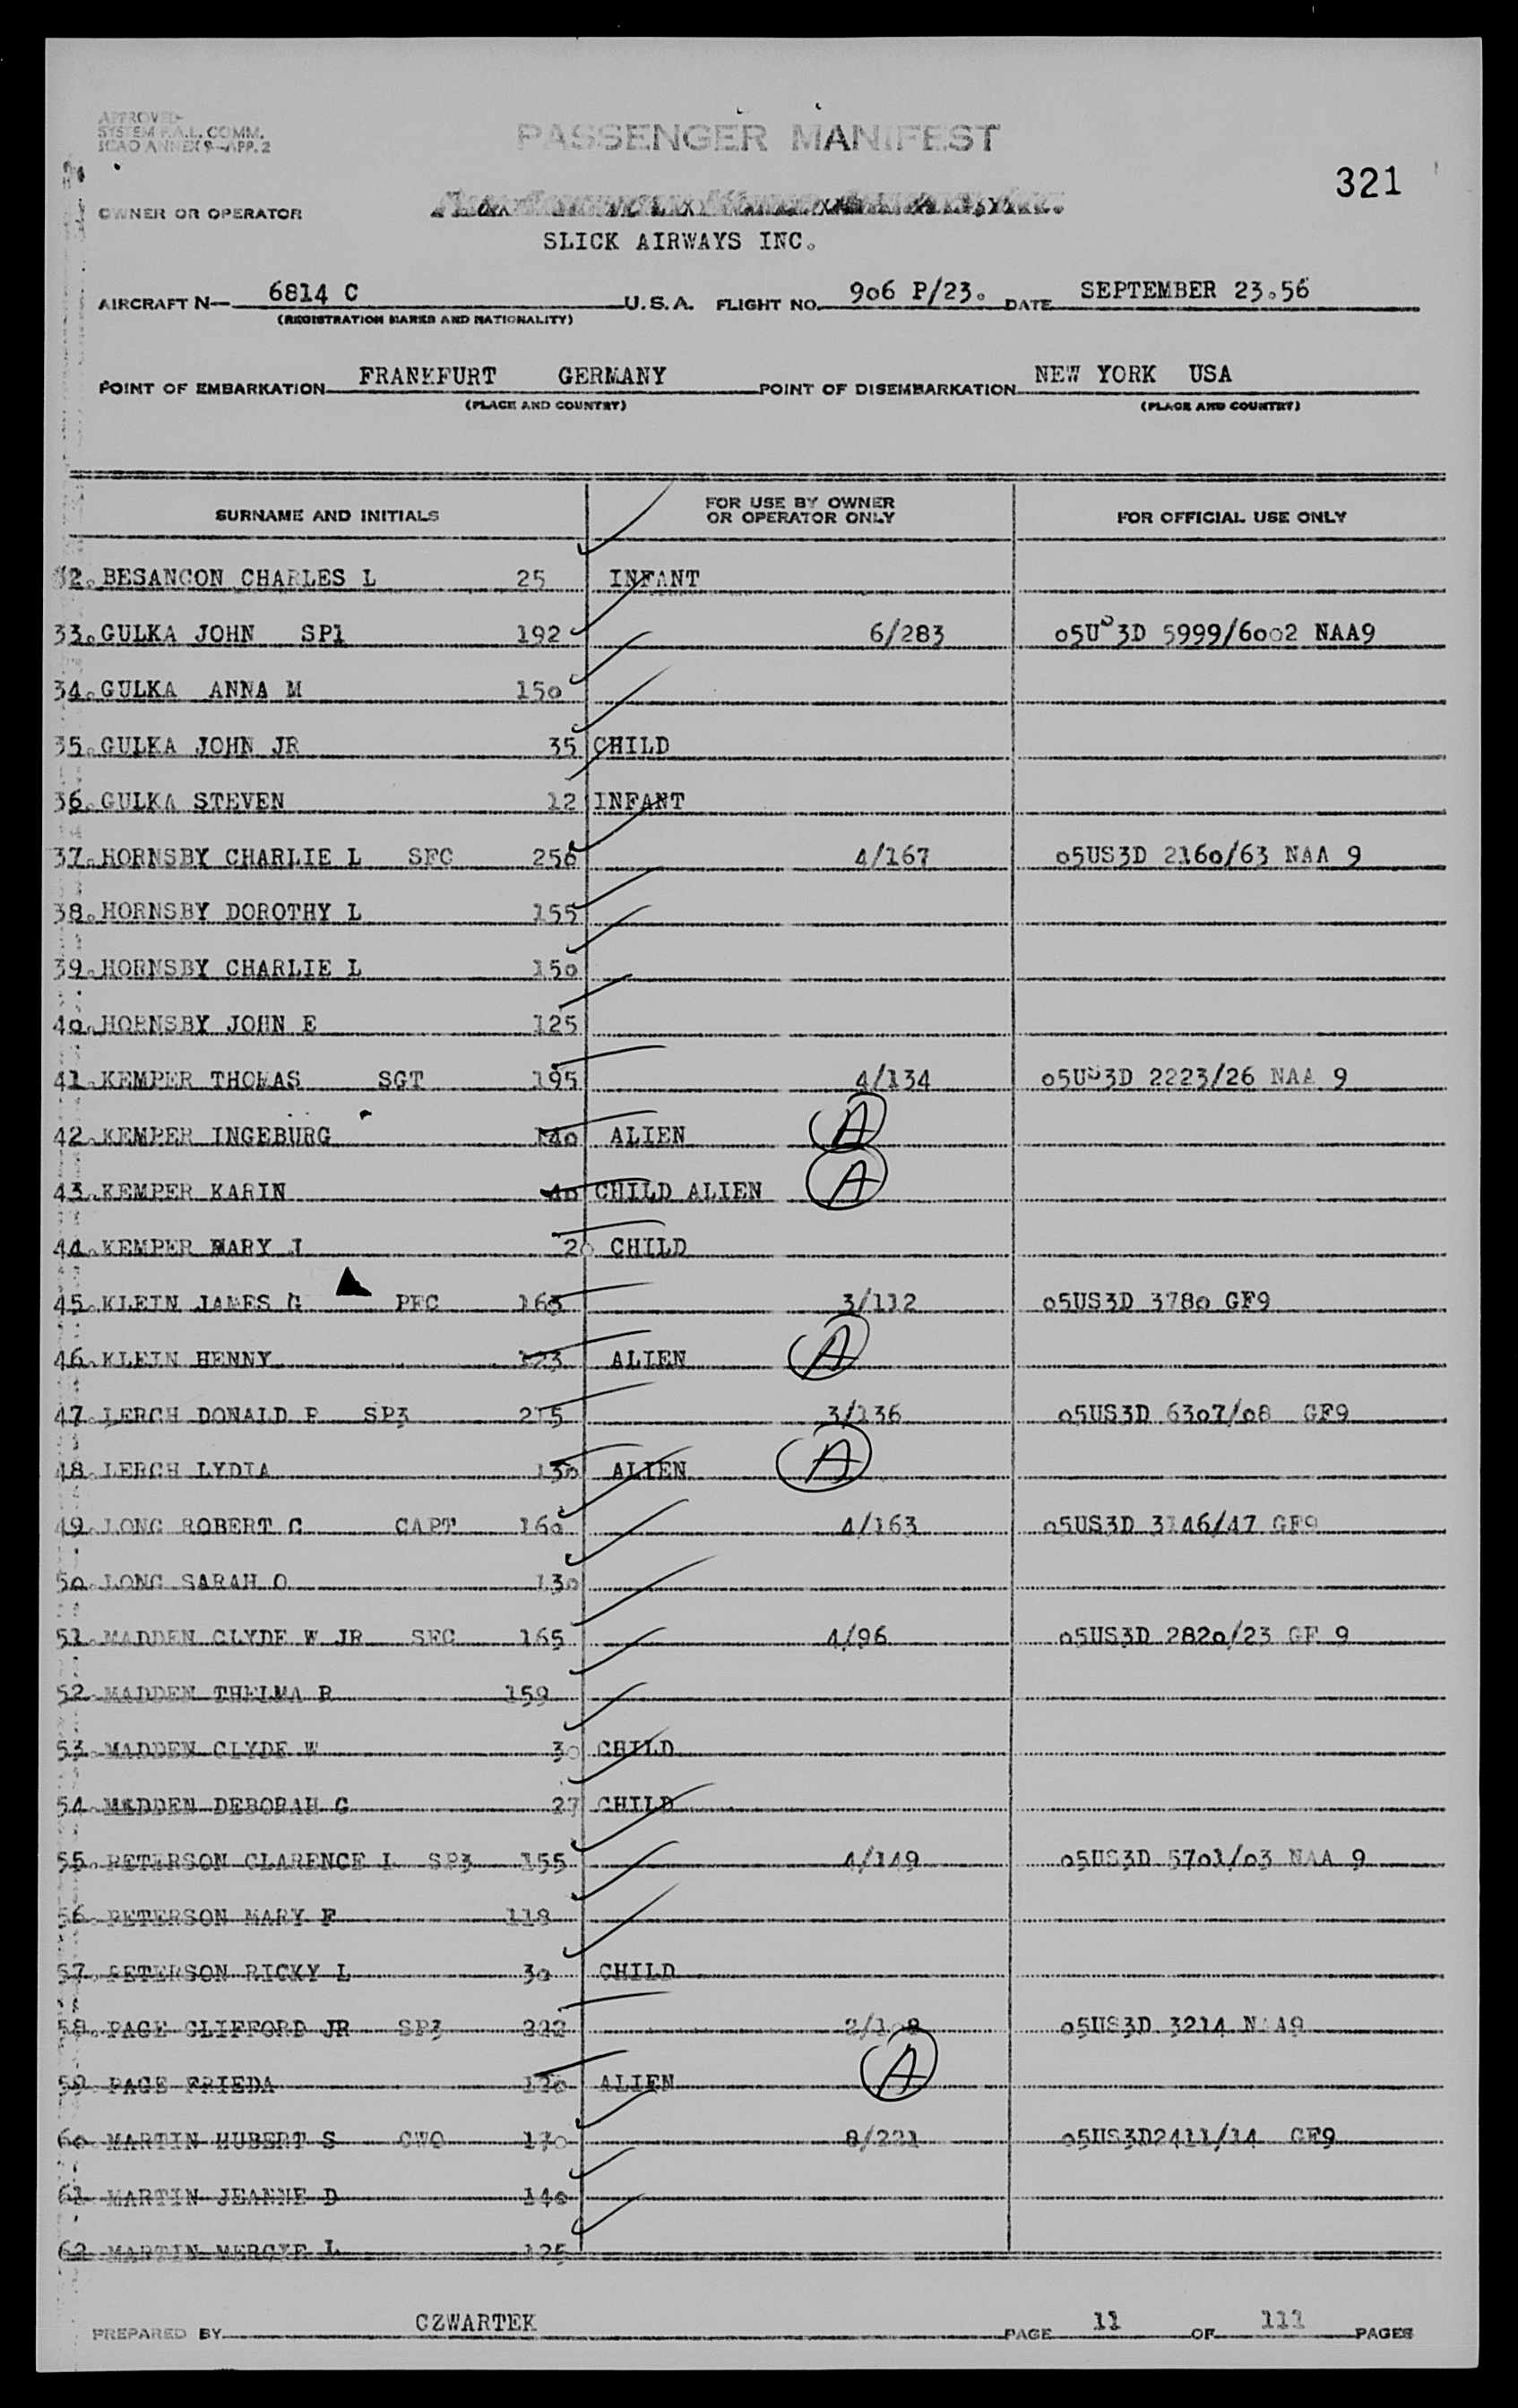 APPROVED
SYSTEM F.A.L. COMM.
ICAO ANNEX 9—APP. 2
PASSENGER MANIFEST
321
OWNER OR OPERATOR
SLICK AIRWAYS INC.
AIRCRAFT N— 6814 C U.S.A. FLIGHT NO. 906 P/23. DATE SEPTEMBER 23.56
(REGISTRATION MARKS AND NATIONALITY)
POINT OF EMBARKATION FRANKFURT GERMANY POINT OF DISEMBARKATION NEW YORK USA
(PLACE AND COUNTRY) (PLACE AND COUNTRY)
SURNAME AND INITIALS FOR USE BY OWNER OR OPERATOR ONLY FOR OFFICIAL USE ONLY
32. BESANCON CHARLES L 25 INFANT
33. GULKA JOHN SP1 192 6/283 05US3D 5999/6002 NAA9
34. GULKA ANNA M 150
35. GULKA JOHN JR 35 CHILD
36. GULKA STEVEN 12 INFANT
37. HORNSBY CHARLIE L SFC 256 4/167 05US3D 2160/63 NAA 9
38. HORNSBY DOROTHY L 155
39. HORNSBY CHARLIE L 150
40. HORNSBY JOHN E 125
41. KEMPER THOMAS SGT 195 4/134 05US3D 2223/26 NAA 9
42. KEMPER INGEBURG 140 ALIEN A
43. KEMPER KARIN 40 CHILD ALIEN A
44. KEMPER MARY J 20 CHILD
45. KLEIN JAMES G PFC 163 3/112 05US3D 3780 GF9
46. KLEIN HENNY 123 ALIEN A
47. LERCH DONALD P SP3 215 3/136 05US3D 6307/08 GF9
48. LERCH LYDIA 130 ALIEN A
49. LONG ROBERT C CAPT 160 4/163 05US3D 3146/47 GF9
50. LONG SARAH O 130
51. MADDEN CLYDE W JR SFC 165 4/96 05US3D 2820/23 GF 9
52. MADDEN THELMA R 159
53. MADDEN CLYDE W 30 CHILD
54. MADDEN DEBORAH G 27 CHILD
55. PETERSON CLARENCE L SP3 155 4/149 05US3D 5701/03 NAA 9
56. PETERSON MARY F 118
57. PETERSON RICKY L 30 CHILD
58. PAGE CLIFFORD JR SP3 222 2/108 05US3D 3214 NAA9
59. PAGE FRIEDA 120 ALIEN A
60. MARTIN HUBERT S CWO 170 8/221 05US3D2411/14 GF9
61. MARTIN JEANNE D 140
62. MARTIN L 125
PREPARED BY CZWARTEK PAGE 11 OF 111 PAGES